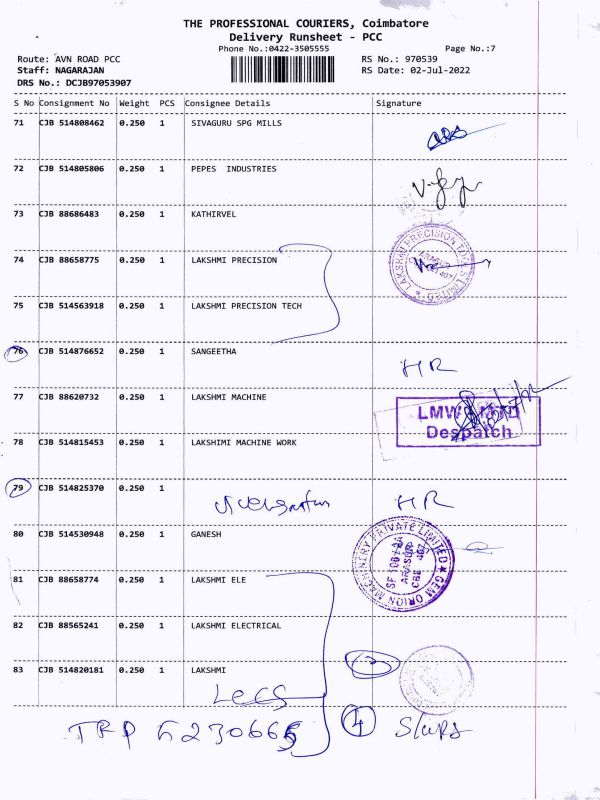 THE PROFESSIONAL COURIERS, Coimbatore
Delivery Runsheet - PCC
Phone No.:0422-3505555 Page No.:7
Route: AVN ROAD PCC RS No.: 970539
Staff: NAGARAJAN RS Date: 02-Jul-2022
DRS No.: DCJB97053907
S No Consignment No Weight PCS Consignee Details Signature
71 CJB 514808462 0.250 1 SIVAGURU SPG MILLS
72 CJB 514805806 0.250 1 PEPES INDUSTRIES
73 CJB 88686483 0.250 1 KATHIRVEL
74 CJB 88658775 0.250 1 LAKSHMI PRECISION
LAKSHMI PRECISION LIMITED
75 CJB 514563918 0.250 1 LAKSHMI PRECISION TECH
76 CJB 514876652 0.250 1 SANGEETHA HR
77 CJB 88620732 0.250 1 LAKSHMI MACHINE
LMW
Despatch
78 CJB 514815453 0.250 1 LAKSHIMI MACHINE WORK
79 CJB 514825370 0.250 1 HR
80 CJB 514530948 0.250 1 GANESH
GEM ORION MACHINERY PRIVATE LIMITED
ARASUR
81 CJB 88658774 0.250 1 LAKSHMI ELE
82 CJB 88565241 0.250 1 LAKSHMI ELECTRICAL
83 CJB 514820181 0.250 1 LAKSHMI
LECS
4